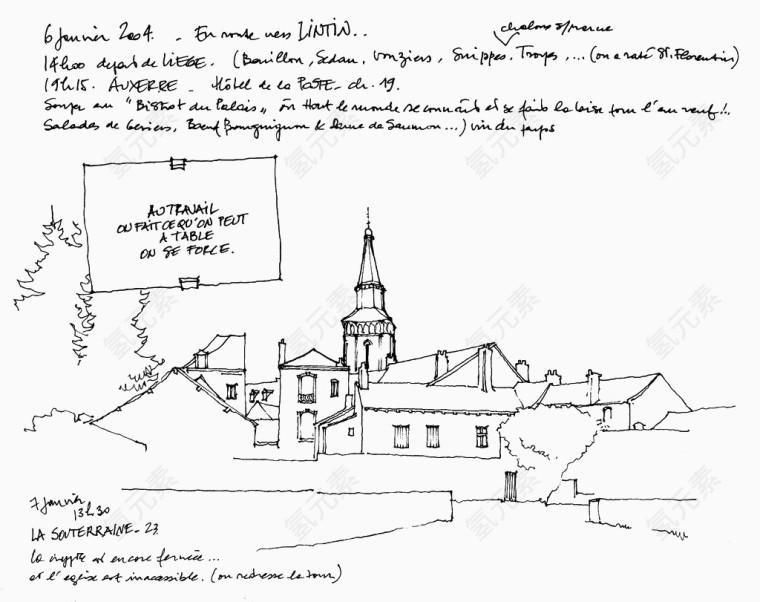 6 Janvier 2004. - En route vers LINTIN..
chalons s/marne
14h00 depart de LIEGE. (Bouillon, Sedan, Vouziers, Suippes, Troyes, ... (on a raté St. Florentin)
19h15. AUXERRE - Hôtel de la POSTE - ch. 19.
Souper au "Bistrot du Palais" où tout le monde se connaît et se fait la bise pour l'an neuf!..
Salades de Gésiers, Boeuf Bourguignon & Saumon...) vin du pays
AU TRAVAIL
ON FAIT CE QU'ON PEUT
A TABLE
ON SE FORCE.
7 Janvier
13h30
LA SOUTERRAINE - 23.
la crypte est encore fermée...
et l'eglise est inaccessible. (on redresse la tour)
氢元素